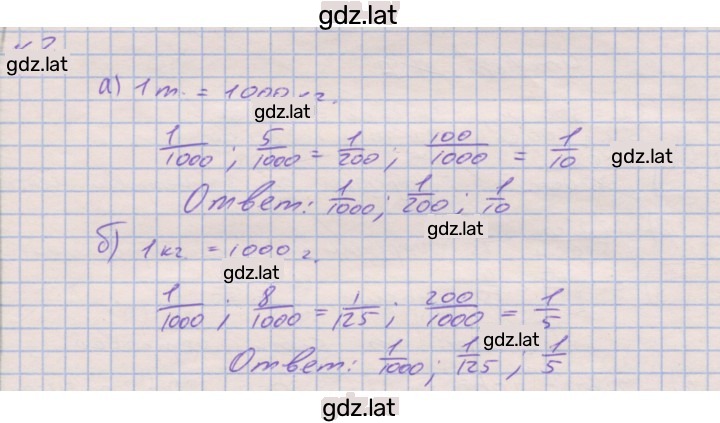 gdz.lat
gdz.lat
а) 1 т. = 1000 кг.
gdz.lat
1/1000 ; 5/1000 = 1/200 ; 100/1000 = 1/10
gdz.lat
Ответ: 1/1000 ; 1/200 ; 1/10
gdz.lat
б) 1 кг. = 1000 г.
gdz.lat
1/1000 ; 8/1000 = 1/125 ; 200/1000 = 1/5
gdz.lat
Ответ: 1/1000 ; 1/125 ; 1/5
gdz.lat